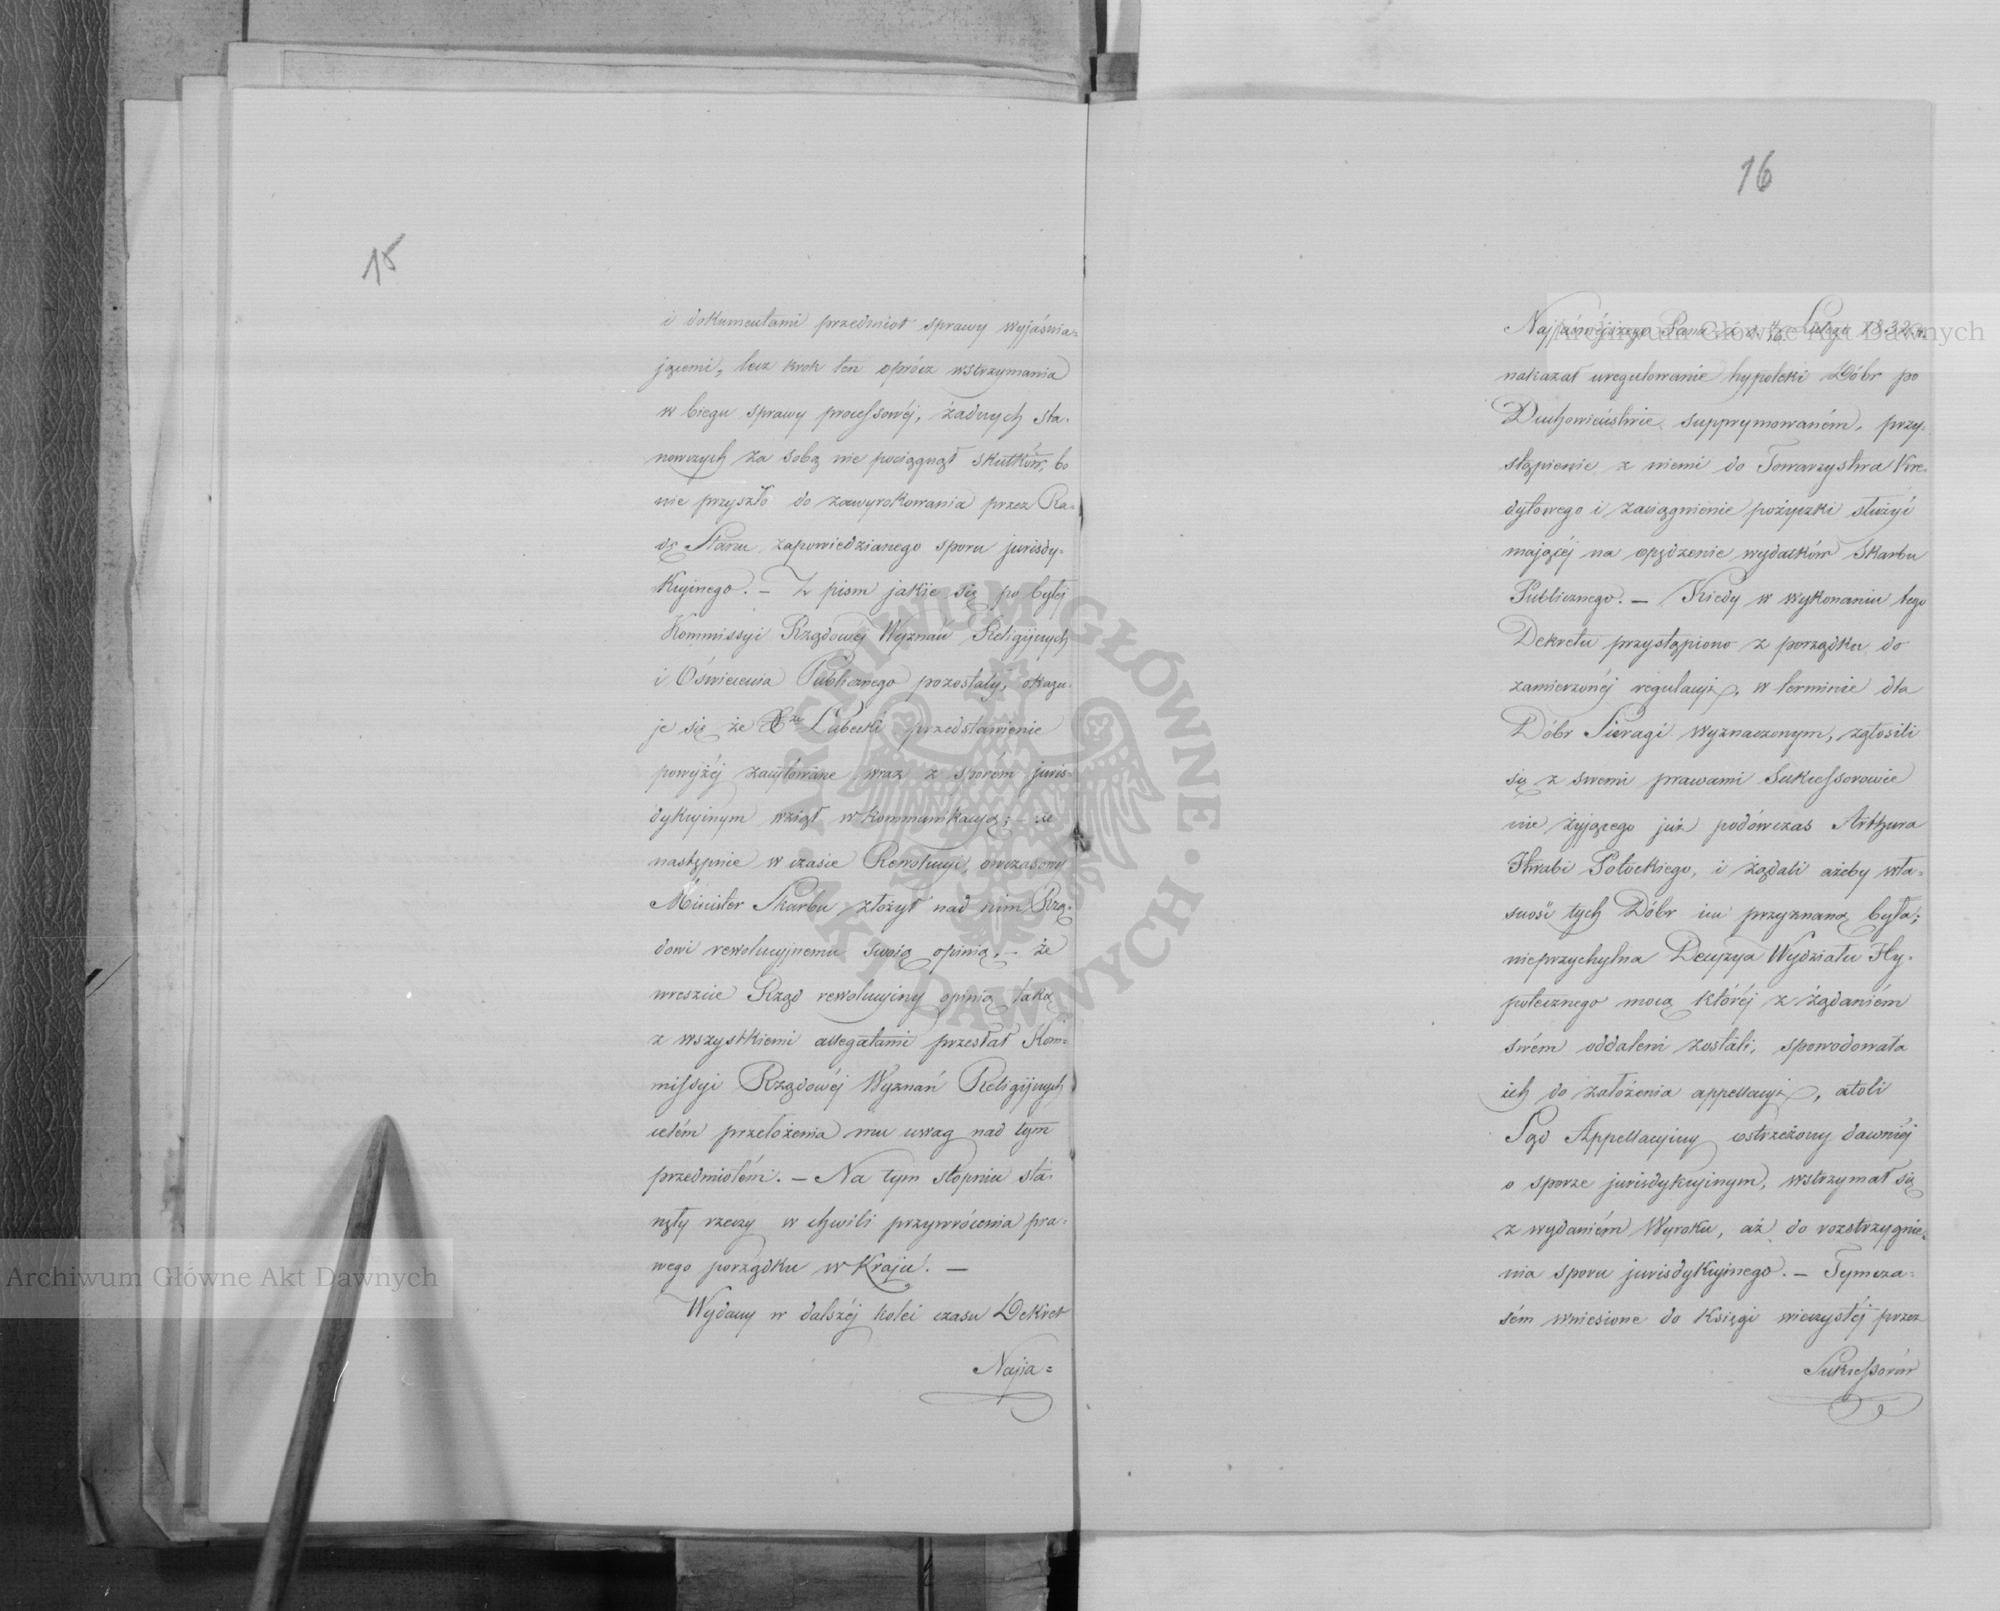 15
i dokumentami przedmiot sprawy wyjaśnia=
jącemi, lecz krok ten oprócz wstrzymania
w biegu sprawy processowéj, żadnych sta-
nowczych za sobą nie pociągnął skutków, bo
nie przyszło do zawyrokowania przez Ra=
dę Stanu zapowiedzianego sporu jurisdy-
kcyjnego. — Z pism jakie się po byłej
Kommissyi Rządowej Wyznań Religijnych
i Oświecenia Publicznego pozostały, okazu-
je się że Xże Lubecki przedstawienie
powyżéj zacytowane wraz z sporem juris-
dykcyjnym wziął w kommunikacyą; — że
następnie w czasie Rewolucyi, owczasowy
Minister Skarbu złożył nad nim Rzą-
dowi rewolucyjnemu swoią opinią, — że
wreszcie Rząd rewolucyjny opinią taką
z wszystkiemi allegatami przesłał Kom=
missyi Rządowéj Wyznań Religijnych
celém przełożenia mu uwag nad tym
przedmiotém. — Na tym stopniu sta-
nęły rzeczy w chwili przywrócenia pra-
wego porządku w Kraju. —
Wydany w dalszéj kolei czasu Dekret
Najja=
16
Najjaśniejszego Pana z d. 4/16 Lutego 1832 r.
nakazał uregulowanie hypoteki Dóbr po
Duchowieństwie supprymowaném, przy-
stąpienie z niemi do Towarzystwa Kre-
dytowego i zaciągnienie pożyczki służyć
mającéj na opędzenie wydatków Skarbu
Publicznego. — Kiedy w wykonaniu tego
Dekretu przystąpiono z porządku do
zamierzonéj regulacyi, w terminie dla
Dóbr Sieragi wyznaczonym, zgłosili
się z swemi prawami Sukcessorowie
nie żyjącego już podówczas Arthura
Hrabi Potockiego, i żądali ażeby wła-
sność tych Dóbr im przyznaną była;
nieprzychylna Decyzya Wydziału Hy-
potecznego mocą któréj z żądaniém
swém oddaleni zostali, spowodowała
ich do założenia appellacyi, atoli
Sąd Appellacyjny ostrzeżony dawniéj
o sporze jurisdykcyjnym, wstrzymał się
z wydaniém Wyroku, aż do rozstrzygnie-
nia sporu jurisdykcyjnego. — Tymcza-
sém wniesione do Księgi wieczystéj przez
Sukcessorów
Archiwum Główne Akt Dawnych
Archiwum Główne Akt Dawnych
ARCHIWUM GŁÓWNE · AKT DAWNYCH ·